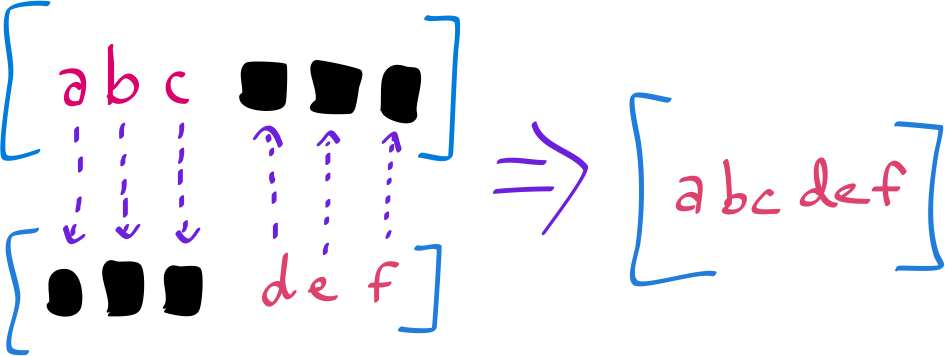 [a b c ■ ■ ■]
[■ ■ ■ d e f]
⇒ [a b c d e f]